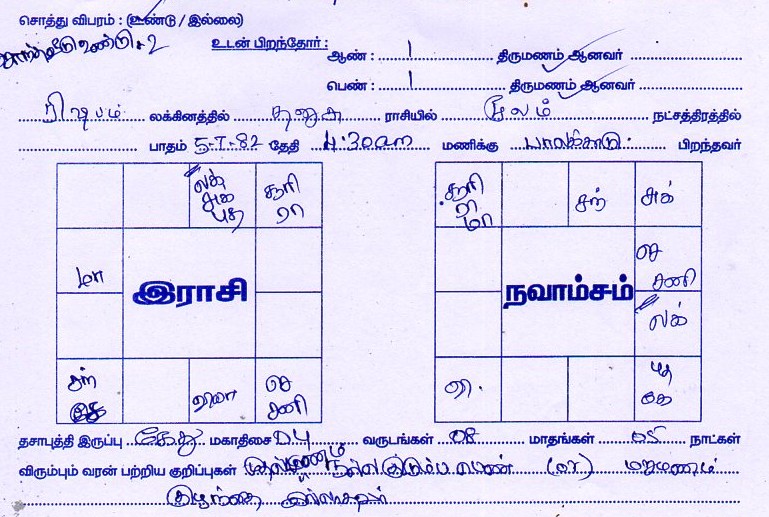 சொத்து விபரம் : (உண்டு / இல்லை)
உடன் பிறந்தோர் : ஆண் : 1 திருமணம் ஆனவர்
பெண் : 1 திருமணம் ஆனவர்
ரிஷபம் லக்கினத்தில் தனுசு ராசியில் மூலம் நட்சத்திரத்தில்
பாதம் 5-7-82 தேதி 4:30am மணிக்கு பாலக்காடு பிறந்தவர்
லக் சுக் புத சூரி ரா
மா
இராசி
சந் கே
செ சனி
சூரி ரா மா சந் சுக்
செ சனி
நவாம்சம்
லக்
புத கே
தசாபுத்தி இருப்பு கேது மகாதிசை 04 வருடங்கள் 08 மாதங்கள் 05 நாட்கள்
விரும்பும் வரன் பற்றிய குறிப்புகள் முதல்மணம் நல்ல குடும்ப பெண் (or) மறுமணம்
குழந்தை இல்லாதவர்